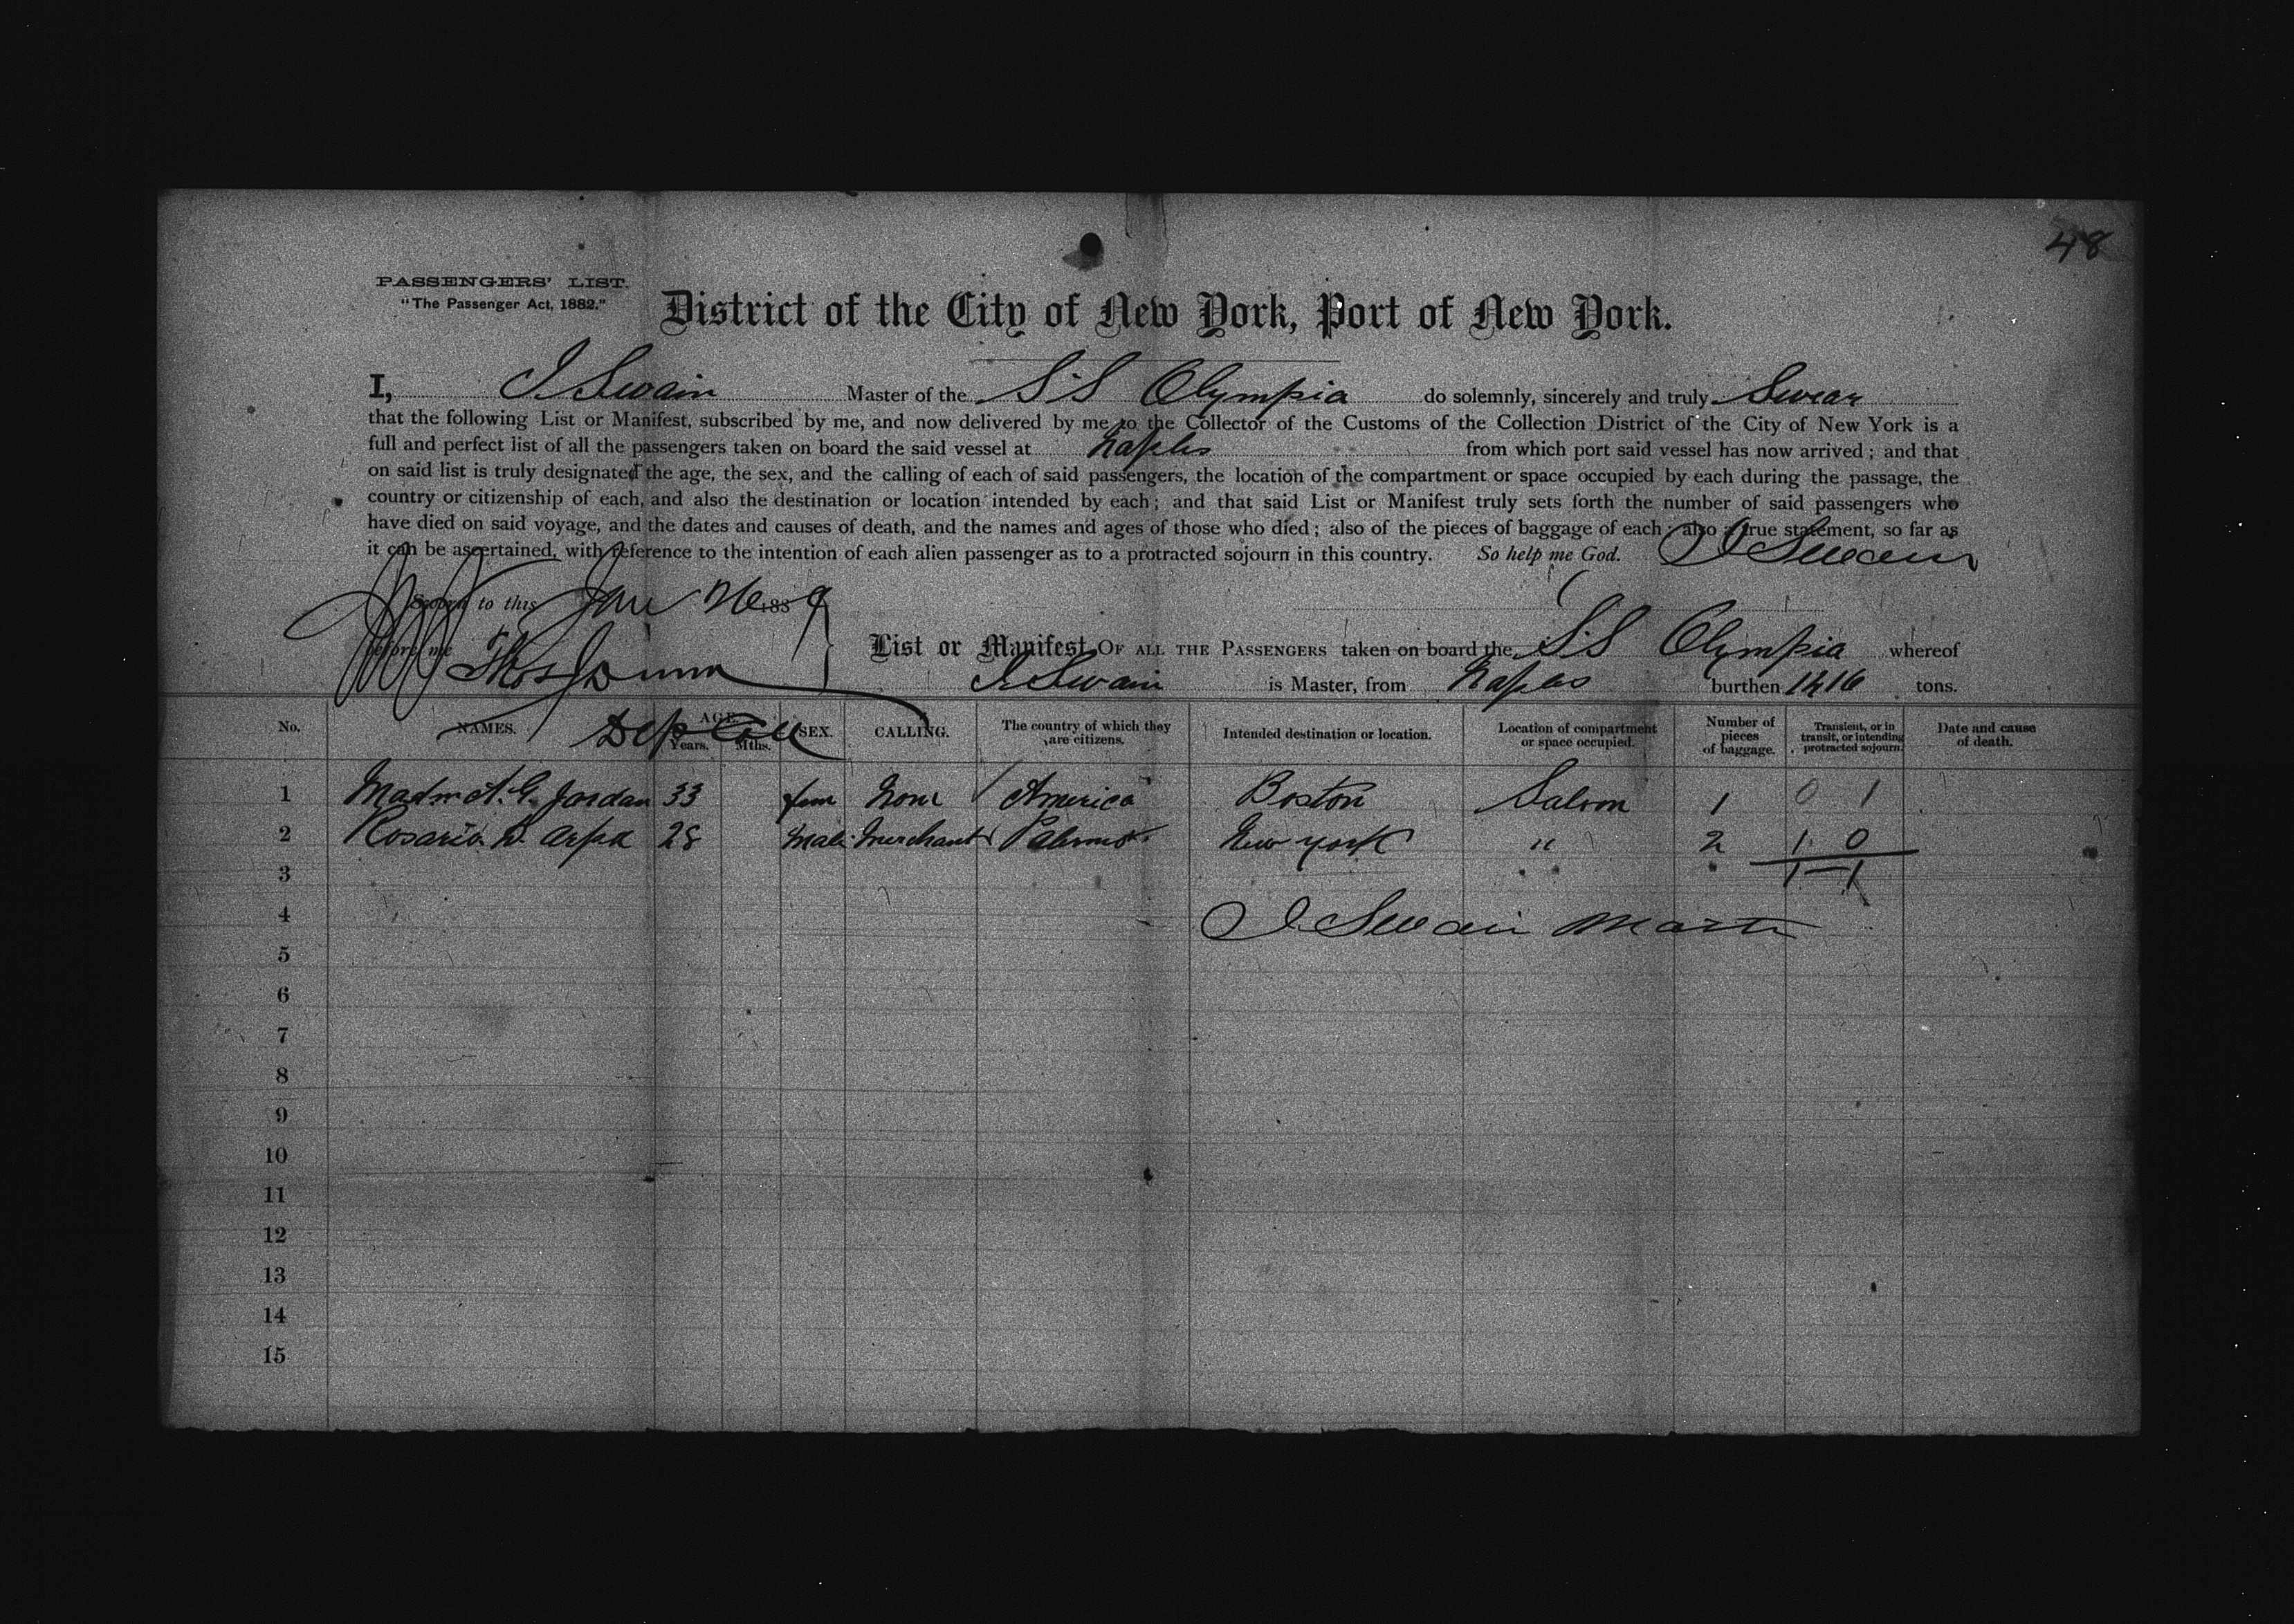 48
PASSENGERS' LIST.
"The Passenger Act, 1882."
District of the City of New York, Port of New York.
I, J Swain Master of the S.S Olympia do solemnly, sincerely and truly Swear
that the following List or Manifest, subscribed by me, and now delivered by me to the Collector of the Customs of the Collection District of the City of New York is a
full and perfect list of all the passengers taken on board the said vessel at Naples from which port said vessel has now arrived; and that
on said list is truly designated the age, the sex, and the calling of each of said passengers, the location of the compartment or space occupied by each during the passage, the
country or citizenship of each, and also the destination or location intended by each; and that said List or Manifest truly sets forth the number of said passengers who
have died on said voyage, and the dates and causes of death, and the names and ages of those who died; also of the pieces of baggage of each; also a true statement, so far as
it can be ascertained, with reference to the intention of each alien passenger as to a protracted sojourn in this country. So help me God. J Swain
Sworn to this Jan 26 1889
before me Thos Dunn
Dep Coll
List or Manifest OF ALL THE PASSENGERS taken on board the S.S Olympia whereof
J. Swain is Master, from Naples burthen 1416 tons.
No. NAMES. AGE. Years. Mths. SEX. CALLING. The country of which they are citizens. Intended destination or location. Location of compartment or space occupied. Number of pieces of baggage. Transient, or in transit, or intending protracted sojourn. Date and cause of death.
1 Madm A. G. Jordan 33 fem None America Boston Saloon 1 0 1
2 Rosario D. Arpa 28 Male Merchant Palermo New York " 2 1 0
3 1 1
4 J. Swain Master
5
6
7
8
9
10
11
12
13
14
15